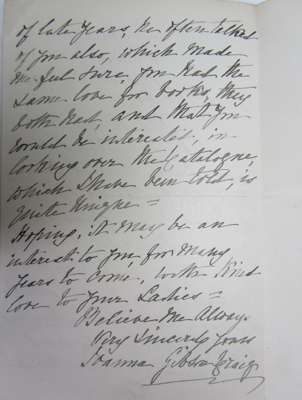 of late years, he often talked
of you also, which made
me feel sure, you had the
same love for books, they
both had, and that you
would be interested, in
looking over the Catalogue,
which I have been told, is
quite unique =
Hoping, it may be an
interest to you for many
years to come, with kind
love to your Ladies =
Believe me Always
Very Sincerely yours
Joanna Gibson Craig